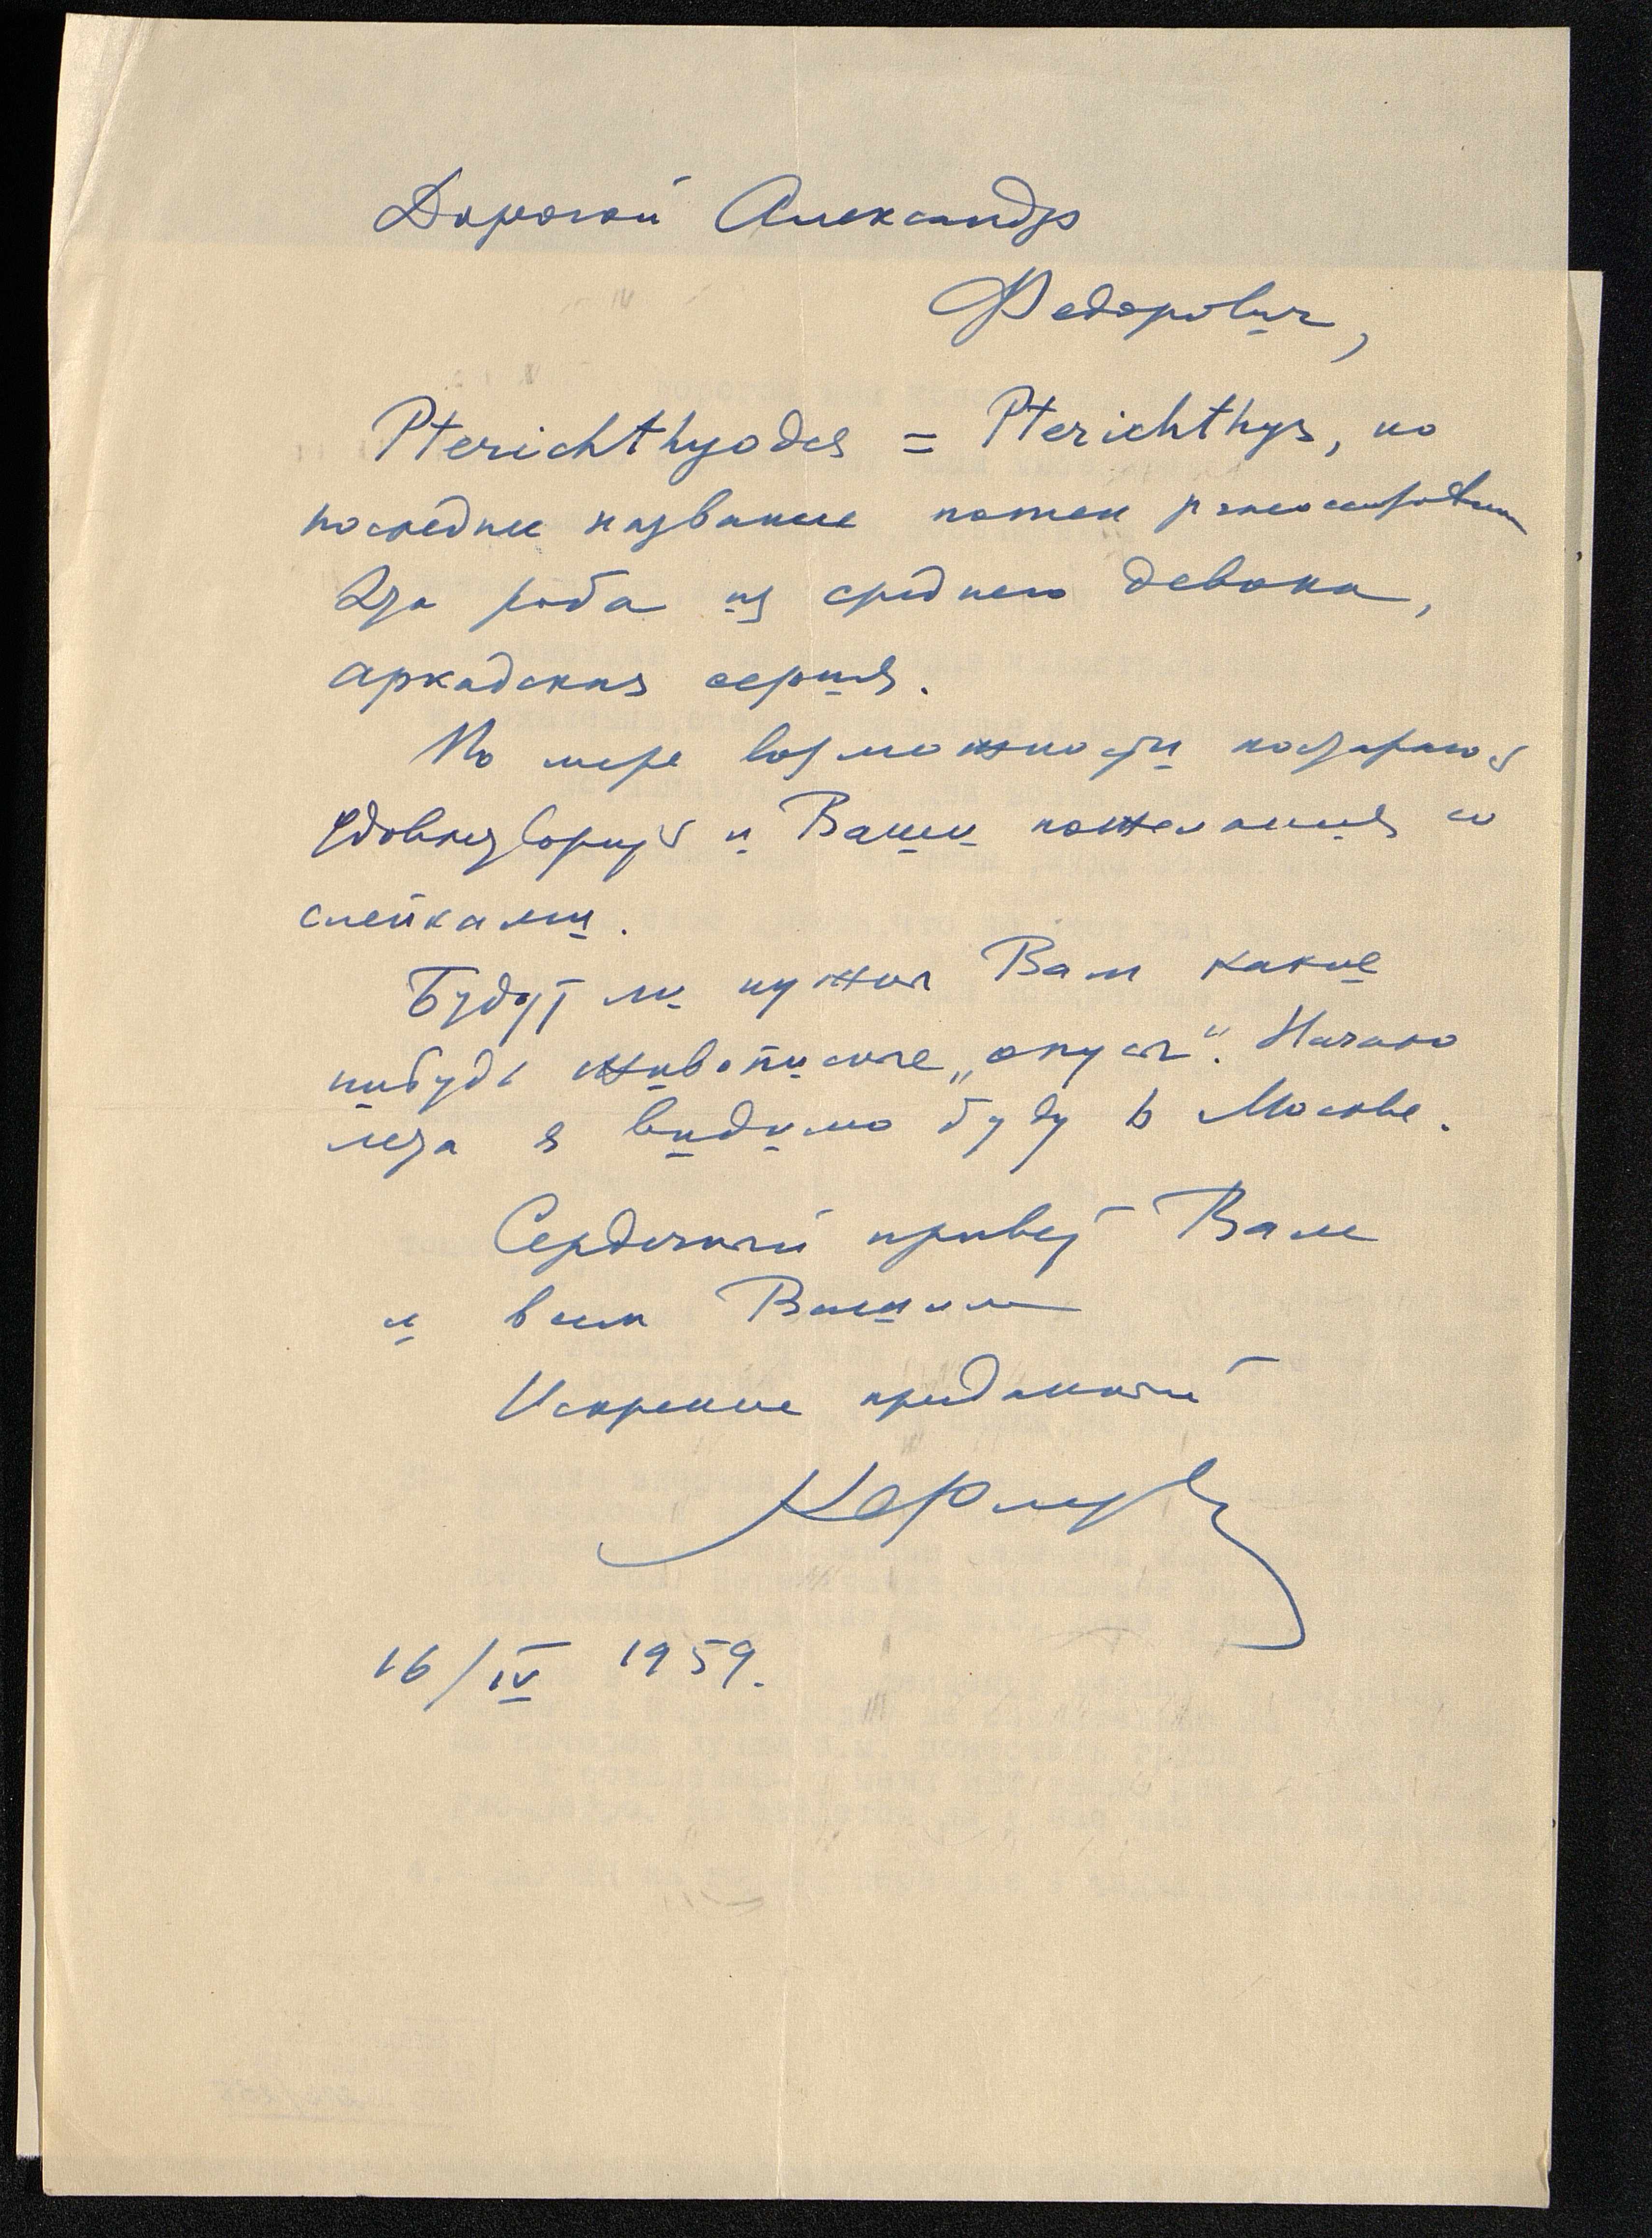 Дорогой Александр
Федорович,
Pterichthyodes = Pterichthys, но
последнее название помен
Эта рыба из среднего девона,
аркадская серия.
По мере возможности постараюсь
удовлетворить и Ваши пожелания со
слепками.
Будут ли нужны Вам какие
нибудь живописные „опусы“. Начало
лета я видимо буду в Москве.
Сердечный привет Вам
и всем Вашим
Искренне преданный
16/IV 1959.